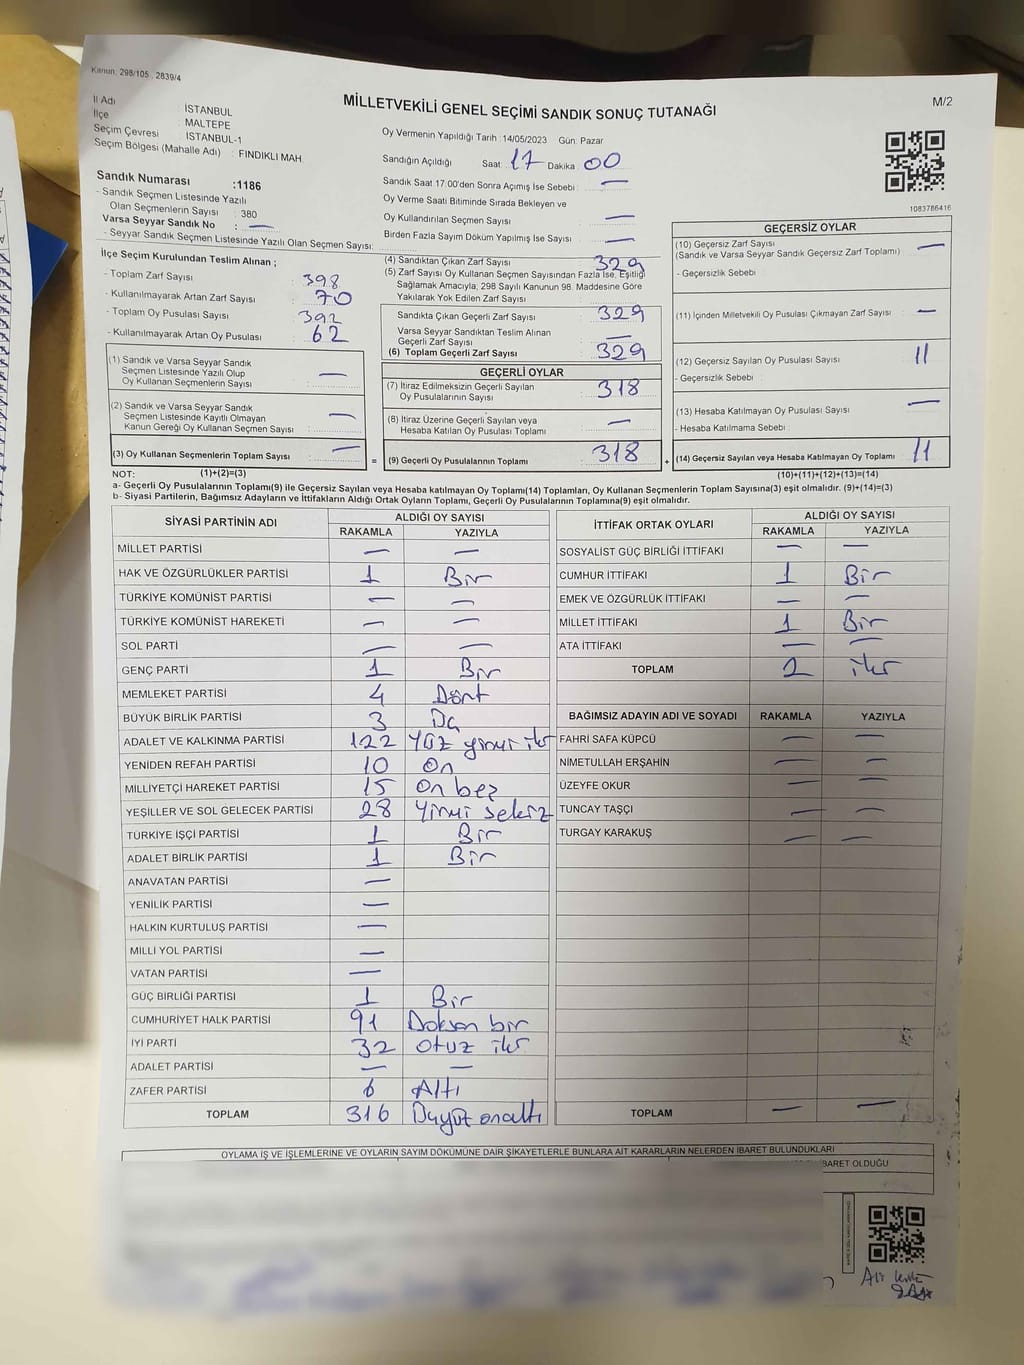 Kanun: 298/105, 2839/4
MİLLETVEKİLİ GENEL SEÇİMİ SANDIK SONUÇ TUTANAĞI
M/2
İl Adı : İSTANBUL
İlçe : MALTEPE
Seçim Çevresi : İSTANBUL-1
Seçim Bölgesi (Mahalle Adı) : FINDIKLI MAH.
Sandık Numarası :1186
- Sandık Seçmen Listesinde Yazılı
Olan Seçmenlerin Sayısı : 380
Varsa Seyyar Sandık No : —
- Seyyar Sandık Seçmen Listesinde Yazılı Olan Seçmen Sayısı:
Oy Vermenin Yapıldığı Tarih :14/05/2023 Gün: Pazar
Sandığın Açıldığı Saat: 17 Dakika 00
Sandık Saat 17:00'den Sonra Açımış İse Sebebi : —
Oy Verme Saati Bitiminde Sırada Bekleyen ve
Oy Kullandırılan Seçmen Sayısı : —
Birden Fazla Sayım Döküm Yapılmış İse Sayısı : —
1083786416
İlçe Seçim Kurulundan Teslim Alınan ;
- Toplam Zarf Sayısı : 398
- Kullanılmayarak Artan Zarf Sayısı : 70
- Toplam Oy Pusulası Sayısı : 392
- Kullanılmayarak Artan Oy Pusulası : 62
(1) Sandık ve Varsa Seyyar Sandık
Seçmen Listesinde Yazılı Olup
Oy Kullanan Seçmenlerin Sayısı : —
(2) Sandık ve Varsa Seyyar Sandık
Seçmen Listesinde Kayıtlı Olmayan
Kanun Gereği Oy Kullanan Seçmen Sayısı : —
(3) Oy Kullanan Seçmenlerin Toplam Sayısı : —
(1)+(2)=(3)
(4) Sandıktan Çıkan Zarf Sayısı : 329
(5) Zarf Sayısı Oy Kullanan Seçmen Sayısından Fazla İse, Eşitliği
Sağlamak Amacıyla, 298 Sayılı Kanunun 98. Maddesine Göre
Yakılarak Yok Edilen Zarf Sayısı :
Sandıkta Çıkan Geçerli Zarf Sayısı : 329
Varsa Seyyar Sandıktan Teslim Alınan
Geçerli Zarf Sayısı : —
(6) Toplam Geçerli Zarf Sayısı : 329
GEÇERLİ OYLAR
(7) İtiraz Edilmeksizin Geçerli Sayılan
Oy Pusulalarının Sayısı : 318
(8) İtiraz Üzerine Geçerli Sayılan veya
Hesaba Katılan Oy Pusulası Toplamı : —
= (9) Geçerli Oy Pusulalarının Toplamı : 318 +
GEÇERSİZ OYLAR
(10) Geçersiz Zarf Sayısı : —
(Sandık ve Varsa Seyyar Sandık Geçersiz Zarf Toplamı)
- Geçersizlik Sebebi :
(11) İçinden Milletvekili Oy Pusulası Çıkmayan Zarf Sayısı : —
(12) Geçersiz Sayılan Oy Pusulası Sayısı : 11
- Geçersizlik Sebebi :
(13) Hesaba Katılmayan Oy Pusulası Sayısı : —
- Hesaba Katılmama Sebebi :
(14) Geçersiz Sayılan veya Hesaba Katılmayan Oy Toplamı : 11
(10)+(11)+(12)+(13)=(14)
NOT:
a- Geçerli Oy Pusulalarının Toplamı(9) ile Geçersiz Sayılan veya Hesaba katılmayan Oy Toplamı(14) Toplamları, Oy Kullanan Seçmenlerin Toplam Sayısına(3) eşit olmalıdır. (9)+(14)=(3)
b- Siyasi Partilerin, Bağımsız Adayların ve İttifakların Aldığı Ortak Oyların Toplamı, Geçerli Oy Pusulalarının Toplamına(9) eşit olmalıdır.
SİYASİ PARTİNİN ADI ALDIĞI OY SAYISI
RAKAMLA YAZIYLA
MİLLET PARTİSİ — —
HAK VE ÖZGÜRLÜKLER PARTİSİ 1 Bir
TÜRKİYE KOMÜNİST PARTİSİ — —
TÜRKİYE KOMÜNİST HAREKETİ — —
SOL PARTİ — —
GENÇ PARTİ 1 Bir
MEMLEKET PARTİSİ 4 Dört
BÜYÜK BİRLİK PARTİSİ 3 Üç
ADALET VE KALKINMA PARTİSİ 122 Yüz yirmi iki
YENİDEN REFAH PARTİSİ 10 On
MİLLİYETÇİ HAREKET PARTİSİ 15 On beş
YEŞİLLER VE SOL GELECEK PARTİSİ 28 Yirmi sekiz
TÜRKİYE İŞÇİ PARTİSİ 1 Bir
ADALET BİRLİK PARTİSİ 1 Bir
ANAVATAN PARTİSİ —
YENİLİK PARTİSİ —
HALKIN KURTULUŞ PARTİSİ —
MİLLİ YOL PARTİSİ —
VATAN PARTİSİ —
GÜÇ BİRLİĞİ PARTİSİ 1 Bir
CUMHURİYET HALK PARTİSİ 91 Doksan bir
İYİ PARTİ 32 Otuz iki
ADALET PARTİSİ — —
ZAFER PARTİSİ 6 Altı
TOPLAM 316 Üçyüz onaltı
İTTİFAK ORTAK OYLARI ALDIĞI OY SAYISI
RAKAMLA YAZIYLA
SOSYALİST GÜÇ BİRLİĞİ İTTİFAKI — —
CUMHUR İTTİFAKI 1 Bir
EMEK VE ÖZGÜRLÜK İTTİFAKI — —
MİLLET İTTİFAKI 1 Bir
ATA İTTİFAKI — —
TOPLAM 2 iki
BAĞIMSIZ ADAYIN ADI VE SOYADI RAKAMLA YAZIYLA
FAHRİ SAFA KÜPCÜ — —
NİMETULLAH ERŞAHİN — —
ÜZEYFE OKUR — —
TUNCAY TAŞÇI — —
TURGAY KARAKUŞ — —
TOPLAM — —
OYLAMA İŞ VE İŞLEMLERİNE VE OYLARIN SAYIM DÖKÜMÜNE DAİR ŞİKAYETLERLE BUNLARA AİT KARARLARIN NELERDEN İBARET BULUNDUKLARI
İBARET OLDUĞU